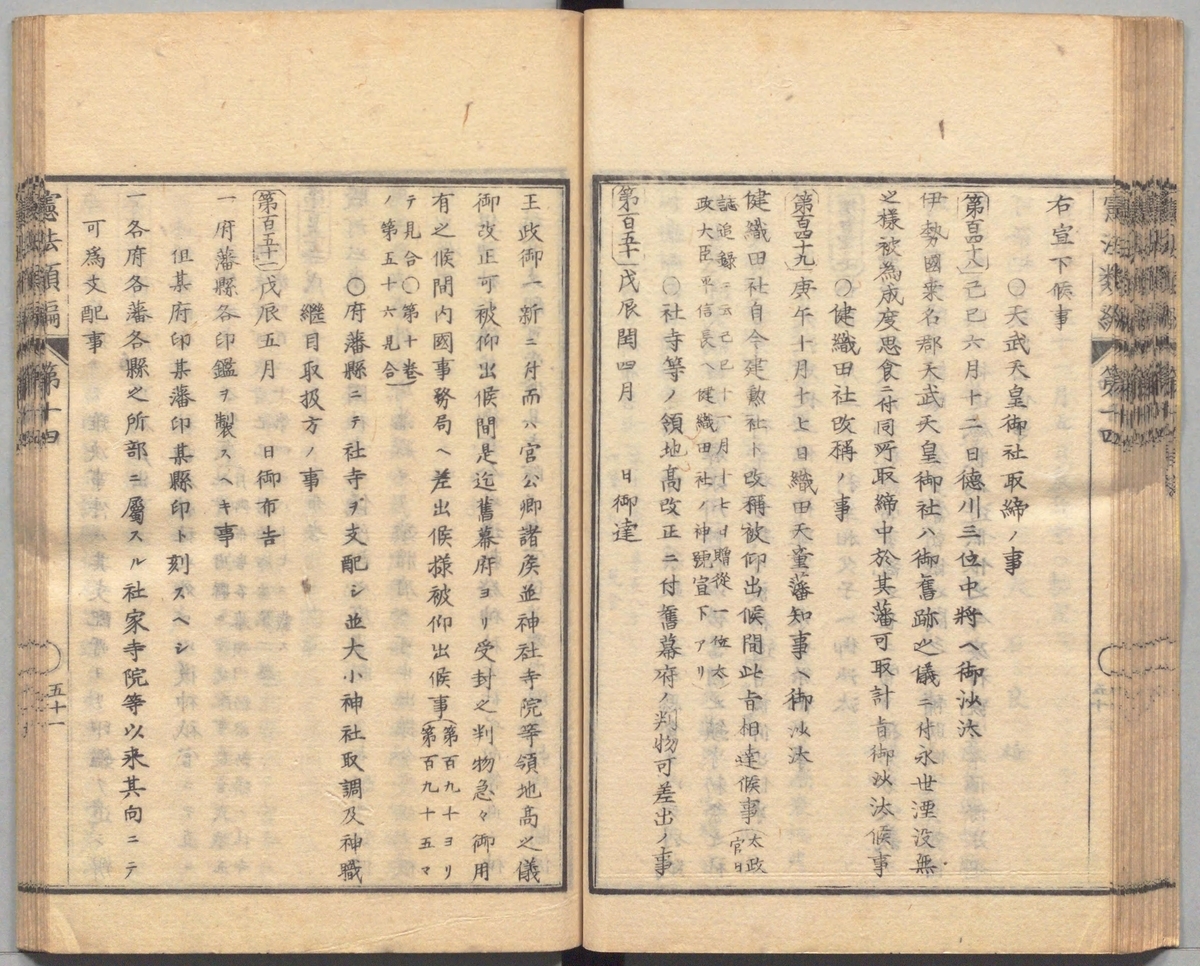 右宣下候事
〇天武天皇御社取締ノ事
第百四十八己巳六月十二日德川三位中將ヘ御沙汰
伊勢國桒名郡天武天皇御社ハ御舊跡之儀ニ付永世湮没無
之樣被為成度思食ニ付同所取締中於其藩可取計旨御沙汰候事
〇健織田社改稱ノ事
第百四十九庚午十月十七日織田天童藩知事ヘ御沙汰
健織田社自今建勲社ト改稱被仰出候間此旨相達候事(太政官日
誌追録ニ云己巳十一月十七日贈從一位太
政大臣平信長ヘ健織田社ノ神號宣下アリ)
〇社寺等ノ領地高改正ニ付舊幕府ノ判物可差出ノ事
第百五十戊辰閏四月 日御達
王政御一新ニ付而ハ官公卿諸侯並神社寺院等領地高之儀
御改正可被仰出候間是迄舊幕府ヨリ受封之判物急々御用
有之候間内國事務局ヘ差出候樣被仰出候事(第百九十ヨリ第百九十五マ
テ見合〇第十卷
ノ第五十六見合)
〇府藩縣ニテ社寺ヲ支配シ並大小神社取調及神職
繼目取扱方ノ事
第百五十一戊辰五月 日御布告
一府藩縣各印鑑ヲ製スヘキ事
但某府印某藩印某縣印ト刻スヘシ
一各府各藩各縣之所部ニ屬スル社家寺院等以来其向ニテ
可爲支配事
憲法類編 第十四 五十一